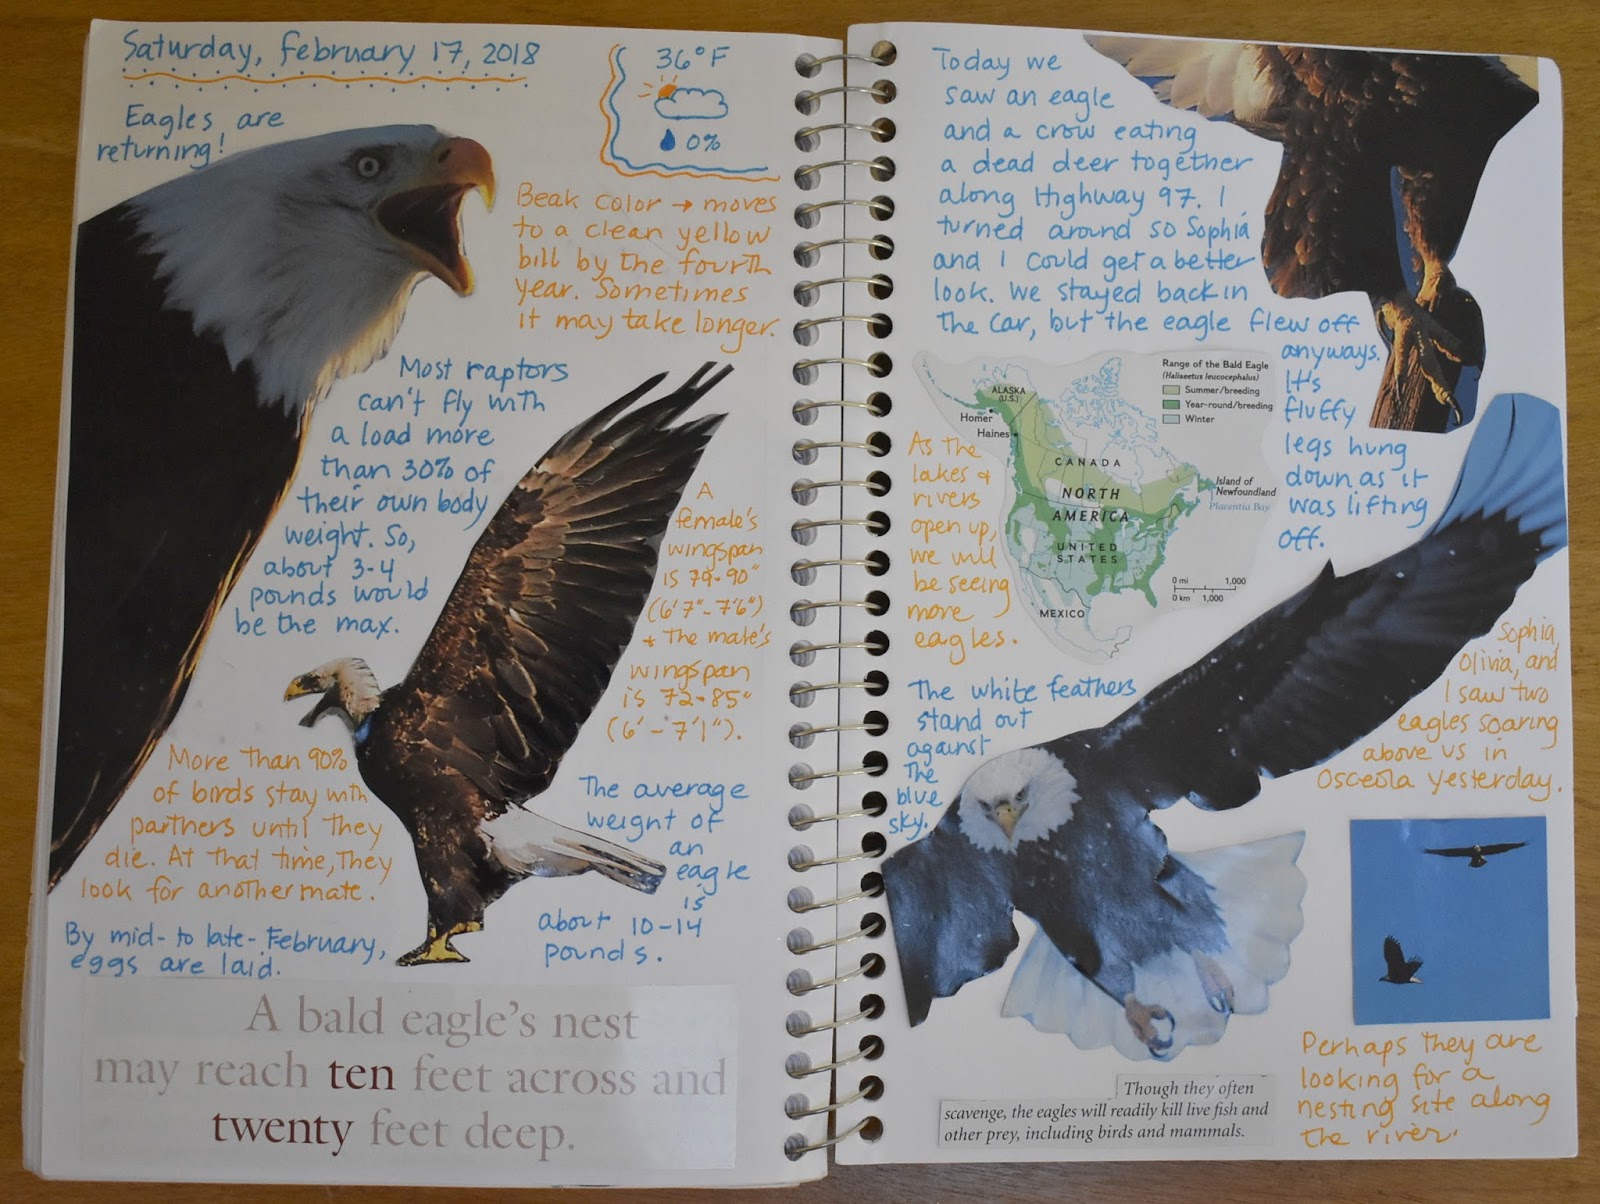 Saturday, February 17, 2018
Eagles are
returning!
36°F
0%
Beak color → moves
to a clean yellow
bill by the fourth
year. Sometimes
it may take longer.
Most raptors
can't fly with
a load more
than 30% of
their own body
weight. So,
about 3-4
pounds would
be the max.
A
female's
wingspan
is 79-90"
(6'7"-7'6")
& the male's
wingspan
is 72-85"
(6'-7'1").
More than 90%
of birds stay with
partners until they
die. At that time, they
look for another mate.
The average
weight of
an
eagle
is
about 10-14
pounds.
By mid- to late-February,
eggs are laid.
A bald eagle's nest
may reach ten feet across and
twenty feet deep.
Today we
saw an eagle
and a crow eating
a dead deer together
along Highway 97. I
turned around so Sophia
and I could get a better
look. We stayed back in
the car, but the eagle flew off
anyways.
It's
fluffy
legs hung
down as it
was lifting
off.
Range of the Bald Eagle
(Haliaeetus leucocephalus)
Summer/breeding
Year-round/breeding
Winter
ALASKA
(U.S.)
Homer
Haines
CANADA
NORTH
AMERICA
UNITED
STATES
MEXICO
Island of
Newfoundland
Placentia Bay
0 mi 1,000
0 km 1,000
As the
lakes &
rivers
open up,
we will
be seeing
more
eagles.
The white feathers
stand out
against
the
blue
sky.
Sophia,
Olivia, and
I saw two
eagles soaring
above us in
Osceola yesterday.
Perhaps they are
looking for a
nesting site along
the river.
Though they often
scavenge, the eagles will readily kill live fish and
other prey, including birds and mammals.